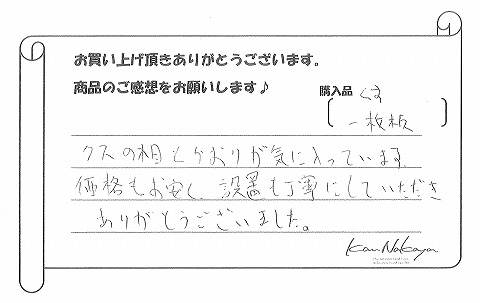 お買い上げ頂きありがとうございます。
商品のご感想をお願いします♪
購入品
くす
一枚板
クスの相とかおりが気に入っています。
価格もお安く、設置も丁寧にしていただき
ありがとうございました。
KanNakaya